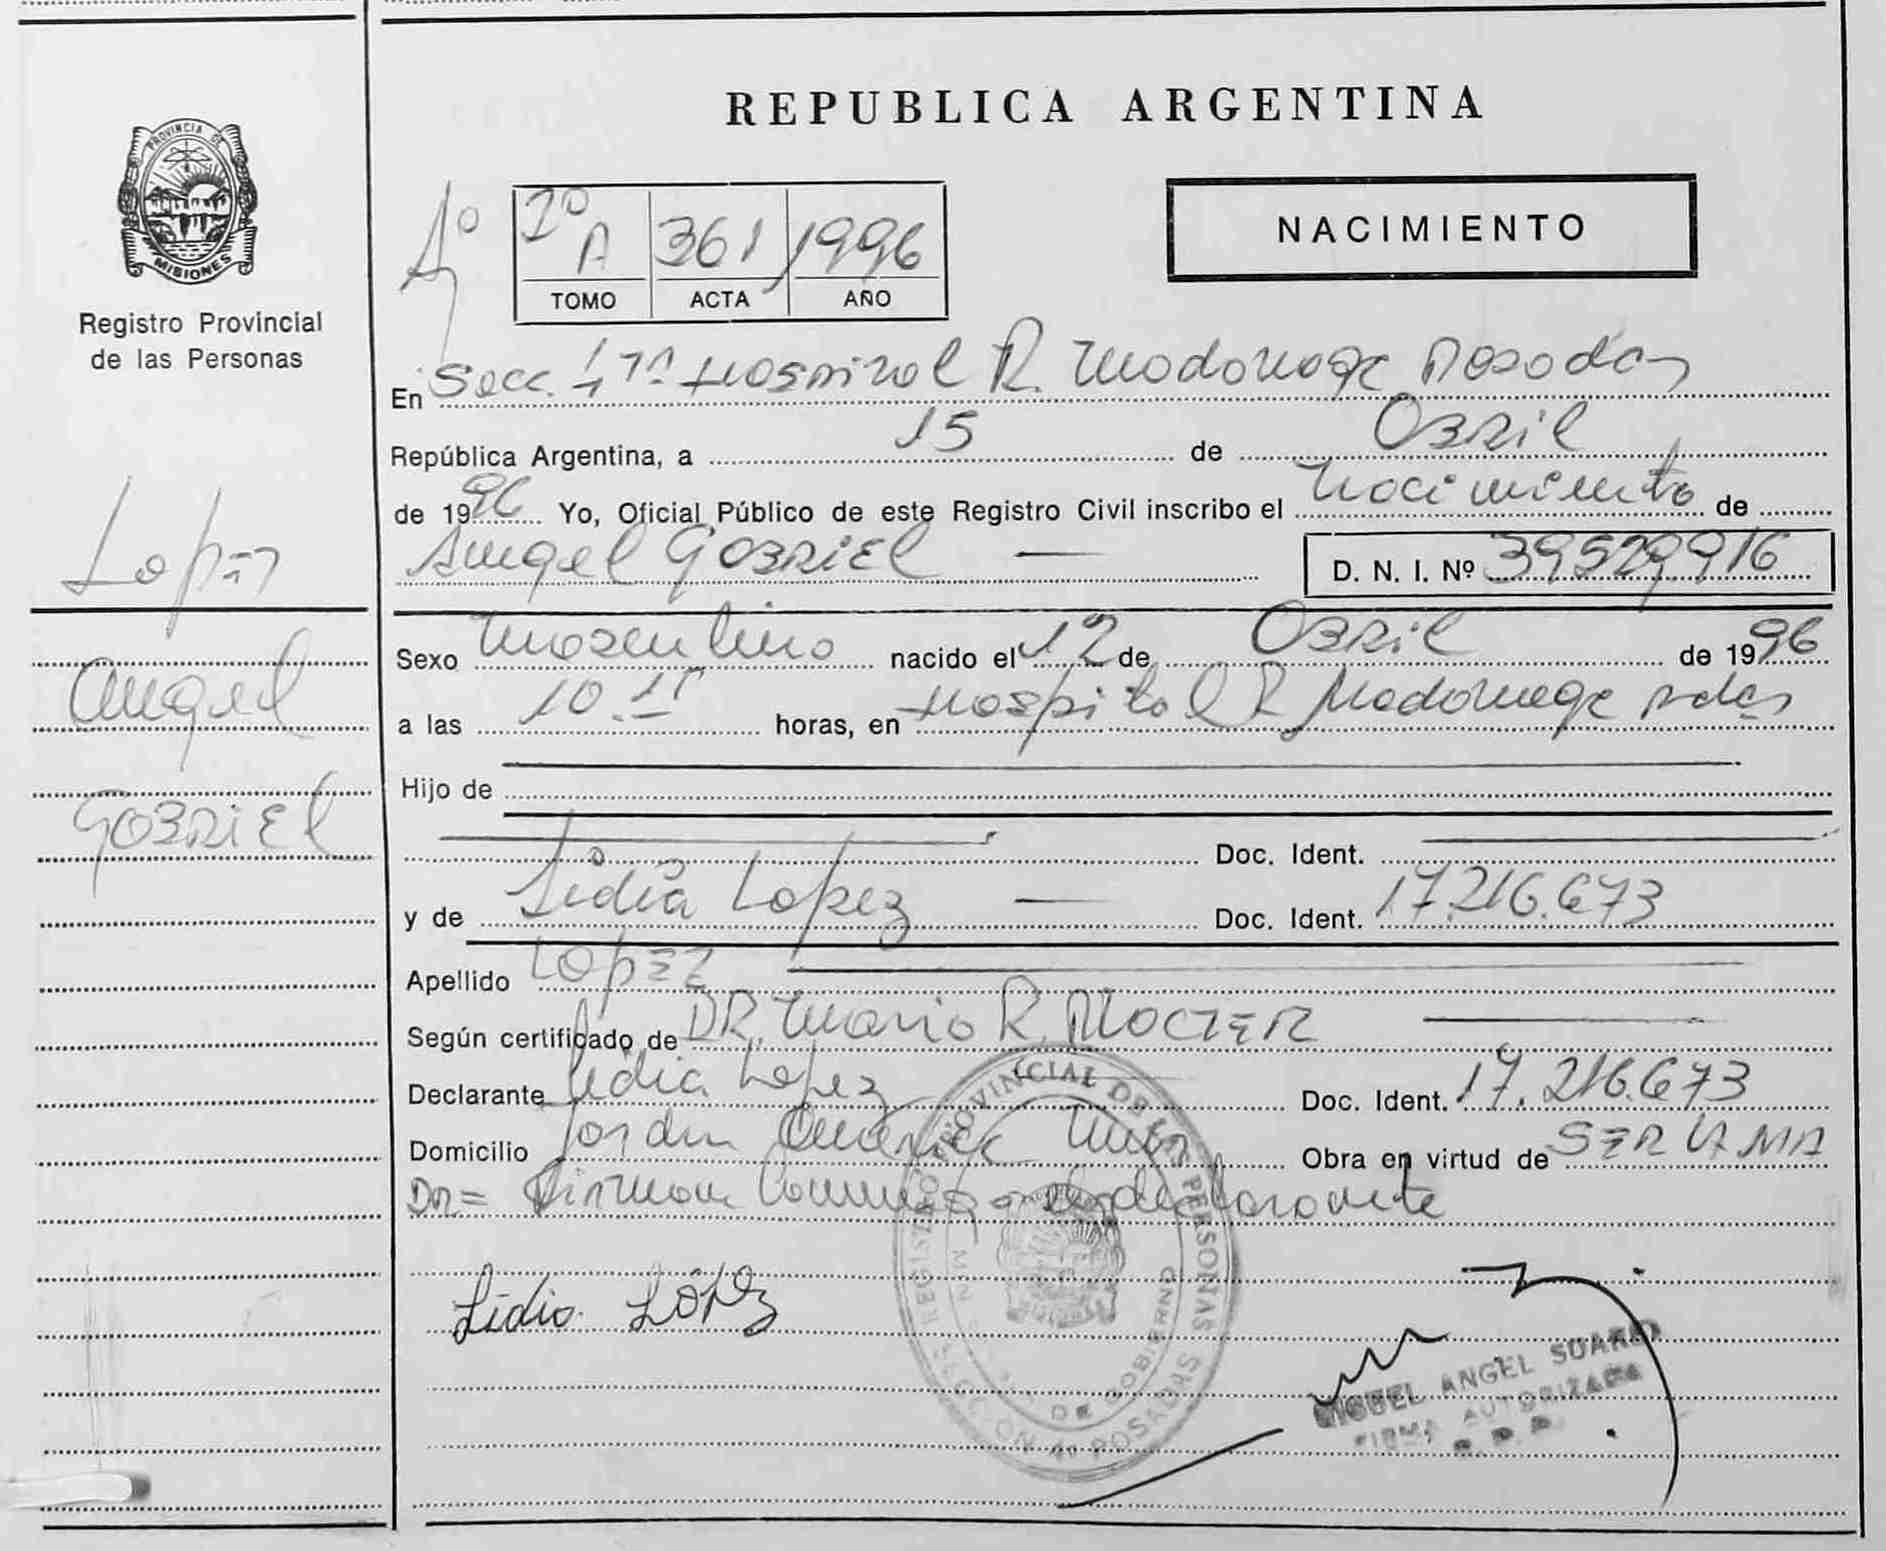 REPUBLICA ARGENTINA
PROVINCIA DE
MISIONES
Registro Provincial
de las Personas
Lopez
Angel
Gabriel
Aº
1º A 361 1996
TOMO ACTA AÑO
NACIMIENTO
En Secc. Hospital R. Madariaga Posadas
República Argentina, a 15 de Abril
de 1996 Yo, Oficial Público de este Registro Civil inscribo el nacimiento de
Angel Gabriel D. N. I. Nº 39529916
Sexo masculino nacido el 12 de Abril de 1996
a las 10. horas, en Hospital R Madariaga Pdas
Hijo de
Doc. Ident.
y de Lidia Lopez Doc. Ident. 17.216.673
Apellido LOPEZ
Según certificado de DR. Mario R.
Declarante Lidia Lopez Doc. Ident. 17.216.673
Domicilio Obra en virtud de SER LA MA
DRE declarante
Lidia López
REGISTRO PROVINCIAL DE LAS PERSONAS
DE GOBIERNO
SECCION POSADAS
MIGUEL ANGEL SUAREZ
FIRMA AUTORIZADA